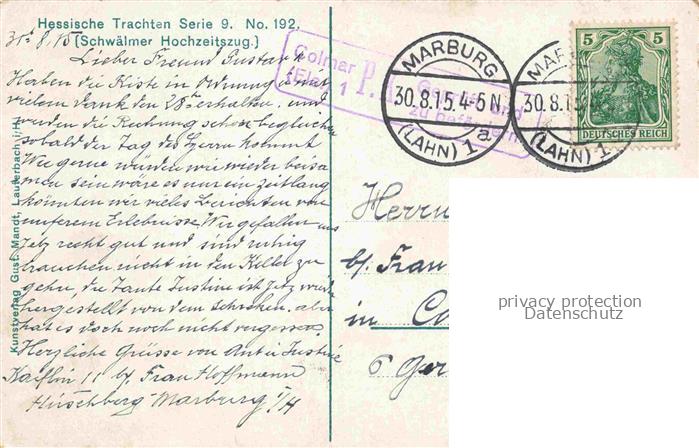 Hessische Trachten Serie 9. No. 192.
(Schwälmer Hochzeitszug.)
30. 8. 15
Lieber Freund Gustav
Haben die Kiste in Ordnung
vielem Dank den 28 erhalten. und
werden die Rechnung schon begleichen
sobald der Tag des Herrn kommt
Wie gerne würden wir wieder beisa
men sein wäre es nur ein zeitlang
könnten wir vieles Berichten von
unserem Erlebnisse. Wir gefallen uns
jetz recht gut und sind ruhig
brauchen nicht in den Keller zu
gehn, die Tante Justine ist jetz wieder
hergestellt von dem Schreken. aber
hat es doch noch nicht vergessen
Herzliche Grüsse von Ant u Justine
11 b/ Frau Hoffmann
Hirschberg Marburg i/H
Kunstverlag Gust. Mandt, Lauterbach i/H.
Colmar
(Els.) 1
P. K.
zu befördern
MARBURG
30.8.15.4-5N.
(LAHN) 1a
MAR
30.8.15
(LAHN) 1
5 5
DEUTSCHES REICH
Herrn
b/ Frau
in Co
6 Ger
privacy protection
Datenschutz